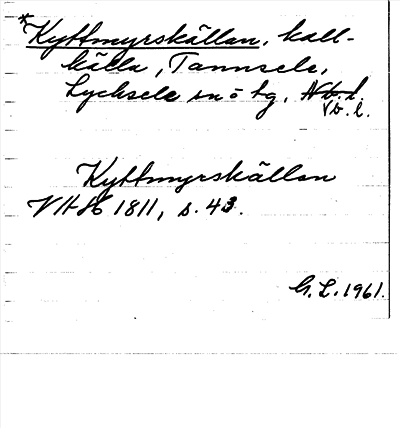 *Kyttmyrskällan, kall-
källa, Tannsele,
Lycksele sn ö tg, Nb. l.
Vb. l.
Kyttmyrskällan
VHH 1811, s. 43.
G. L. 1961.